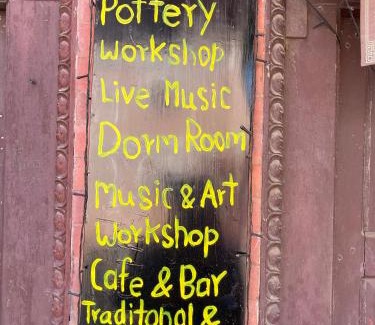 Pottery
workshop
Live Music
Dorm Room
Music & Art
workshop
Cafe & Bar
Traditonal &